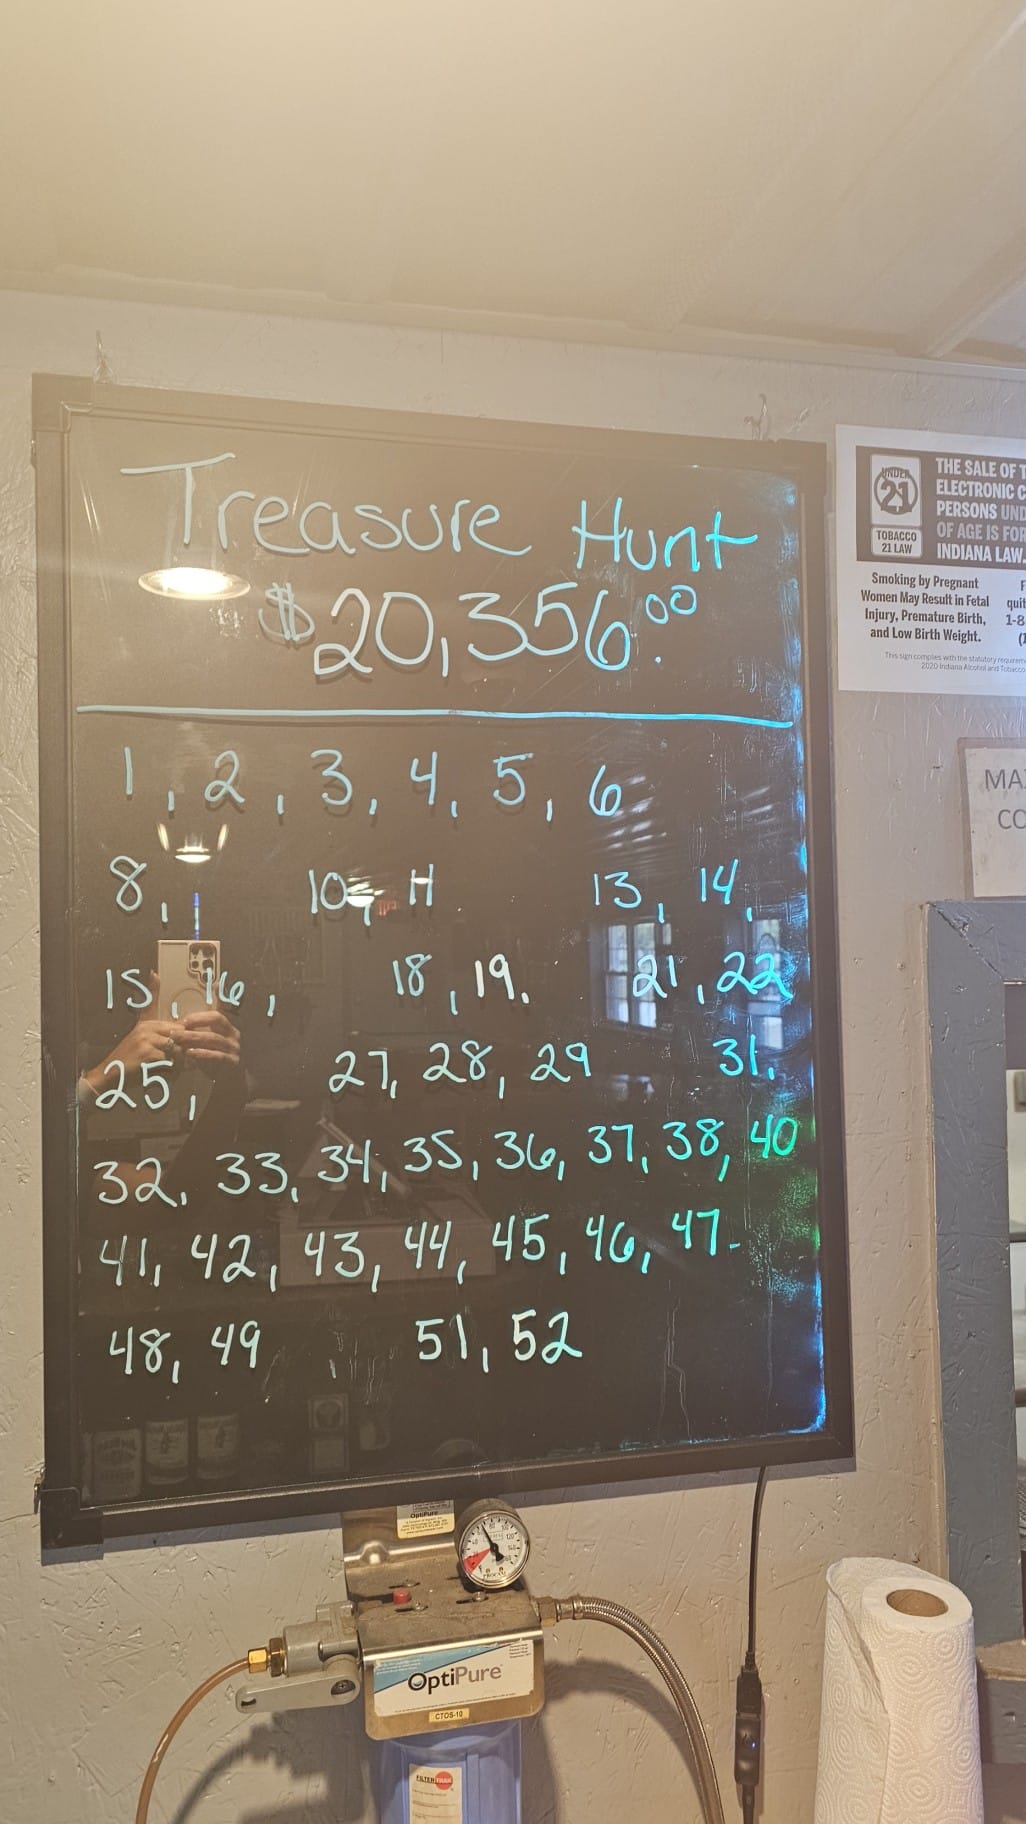 Treasure Hunt
$20,356.00
1, 2, 3, 4, 5, 6
8, 10, 11 13, 14,
15, 16, 18, 19. 21, 22
25, 27, 28, 29 31,
32, 33, 34, 35, 36, 37, 38, 40
41, 42, 43, 44, 45, 46, 47-
48, 49 51, 52
UNDER
21
TOBACCO
21 LAW
THE SALE OF T
ELECTRONIC C
PERSONS UND
OF AGE IS FOR
INDIANA LAW.
Smoking by Pregnant
Women May Result in Fetal
Injury, Premature Birth,
and Low Birth Weight.
F
quit
1-8
(1
This sign complies with the statutory requirem
2020 Indiana Alcohol and Tobacco
MA
CO
OptiPure
OptiPure
CTOS-10